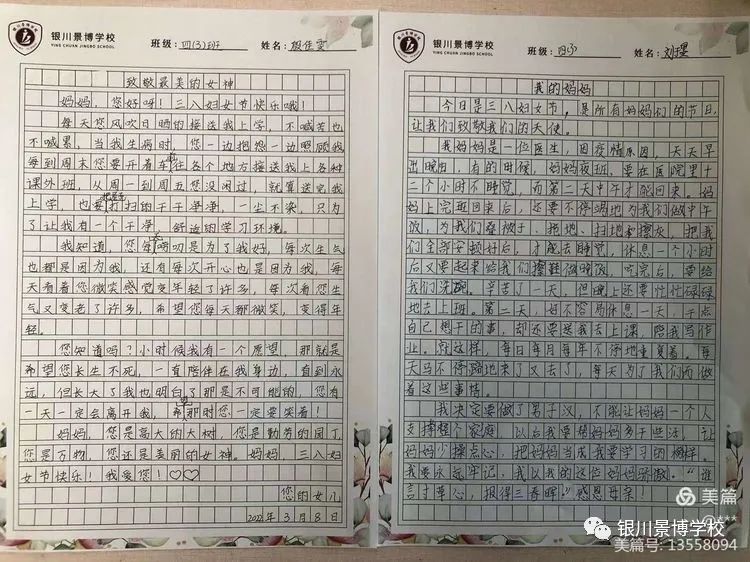 银川景博学校
YIN CHUAN JINGBO SCHOOL
班级: 四(3)班
姓名:
致敬最美的女神
妈妈，您好呀！三八妇女节快乐哦！
每天您风吹日晒的接送我上学，不喊苦也
不喊累，当我生病时，您一边抱怨一边照顾我
每到周末您要开着车往各个地方接送我上各种
课外班，从周一到周五您没闲过，就算送完我
上学，也要打扫的干干净净，一尘不染，只为
了让我有一个干净，舒适的学习环境。
我知道，您每唠叨是为了我好，每次生气
也都是因为我，还有每次开心也是因为我，每
天看着您微笑感觉变年轻了许多，每次看您生
气又变老了许多，希望您每天都微笑，变得年
轻。
您知道吗？小时候我有一个愿望，那就是
希望您长生不死，一直陪伴在我身边，直到永
远，但长大了我也明白了那是不可能的，您有
一天一定会离开我，希那时您一定要笑着！
妈妈，您是高大的大树，您是勤劳的园丁，
您是万物，您还是美丽的女神，妈妈，三八妇
女节快乐！我爱您！♡♡
您的女儿
2022年3月8日
银川景博学校
YING CHUAN JINGBO SCHOOL
班级:
姓名:
我的妈妈
今日是三八妇女节，是所有妈妈们的节日，
让我们致敬我们的天使。
我妈妈是一位医生，因疫情原因，天天早
出晚归，有的时候，妈妈夜班，要在医院里十
二个小时不睡觉，而第二天中午才能回来。妈
妈上完班回来后，还要不停竭地为我们做中午
饭，为我们叠被子、拖地、扫地擦灰，把我
们全部安顿好后，才能去睡觉，休息一个小时
后又要起来给我们擦鞋做晚饭，吃完后，要给
我们洗碗。辛苦了一天，但晚上还要忙忙碌碌
地去上班。第二天，好不容易休息一天，干点
自己想干的事，却还要送我去上课，陪我写作
业。就这样，每日每月每年不停地重复着。每
天马不停蹄地来了又去了，每天为了我们而做
着这些事情。
我决定要做了男子汉，不能让妈妈一个人
支撑整个家庭，以后我要帮妈妈多干些活，让
妈妈少操点心，把妈妈当成我要学习的榜样。
我要永远牢记，我以我的这位妈妈骄傲。“谁
言寸草心，报得三春晖。”感恩母亲！
美篇
银川景博学校
美篇号: 13558094